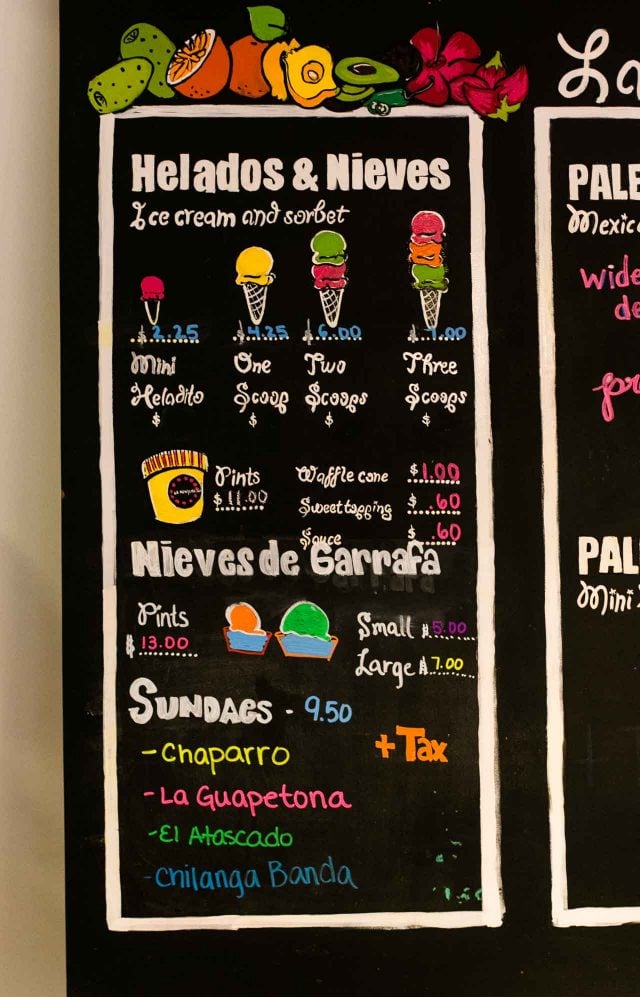 La
Helados & Nieves
Ice cream and sorbet
$ 2.25 $ 4.25 $ 6.00 $ 7.00
Mini One Two Three
Heladito Scoop Scoops Scoops
$ $ $ $
Pints
$ 11.00
Waffle cone $ 1.00
Sweet topping $ .60
Sauce $ .60
Nieves de Garrafa
Pints
$ 13.00
Small $ 5.00
Large $ 7.00
Sundaes - 9.50
+ Tax
- Chaparro
- La Guapetona
- El Atascado
- Chilanga Banda
PALE
Mexic
wide
de
PAL
Mini